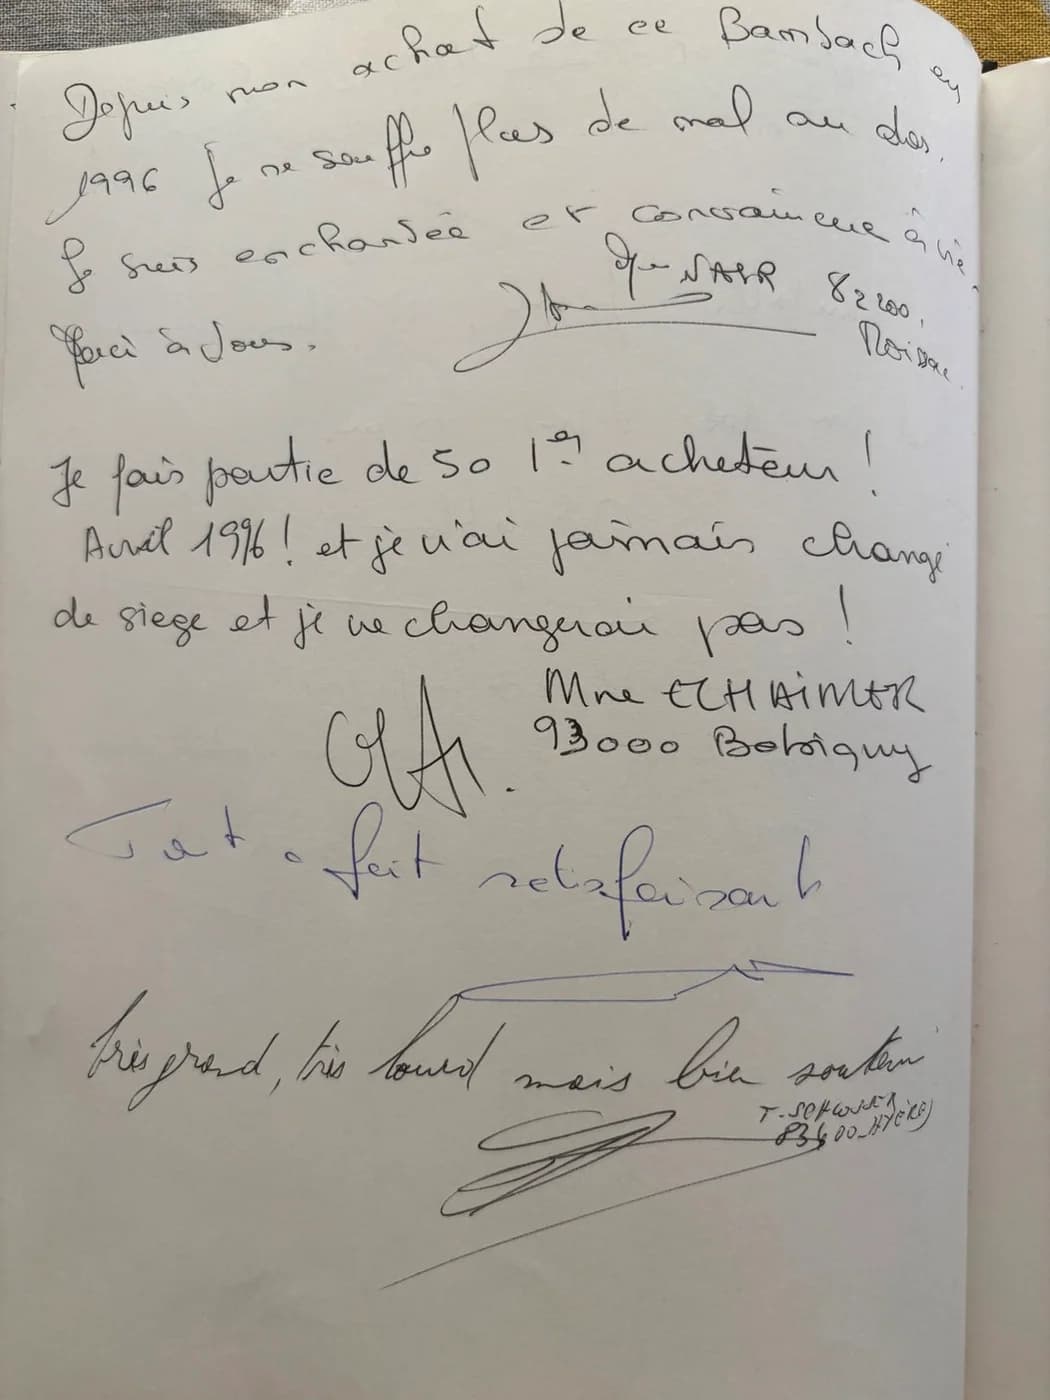 Depuis mon achat de ce Bambach en
1996 Je ne souffre plus de mal au dos.
Je suis enchantée et convaincue à vie
NASR 82200,
Merci à vous. Moissac
Je fais partie de 50 1er acheteur !
Avril 1996 ! et je n'ai jamais changé
de siege et je ne changerai pas !
Mme ECHAIMER
93000 Bobigny
Tout a fait satisfaisant
très grand, très lourd mais bien soutenu
83400 HYÈRES